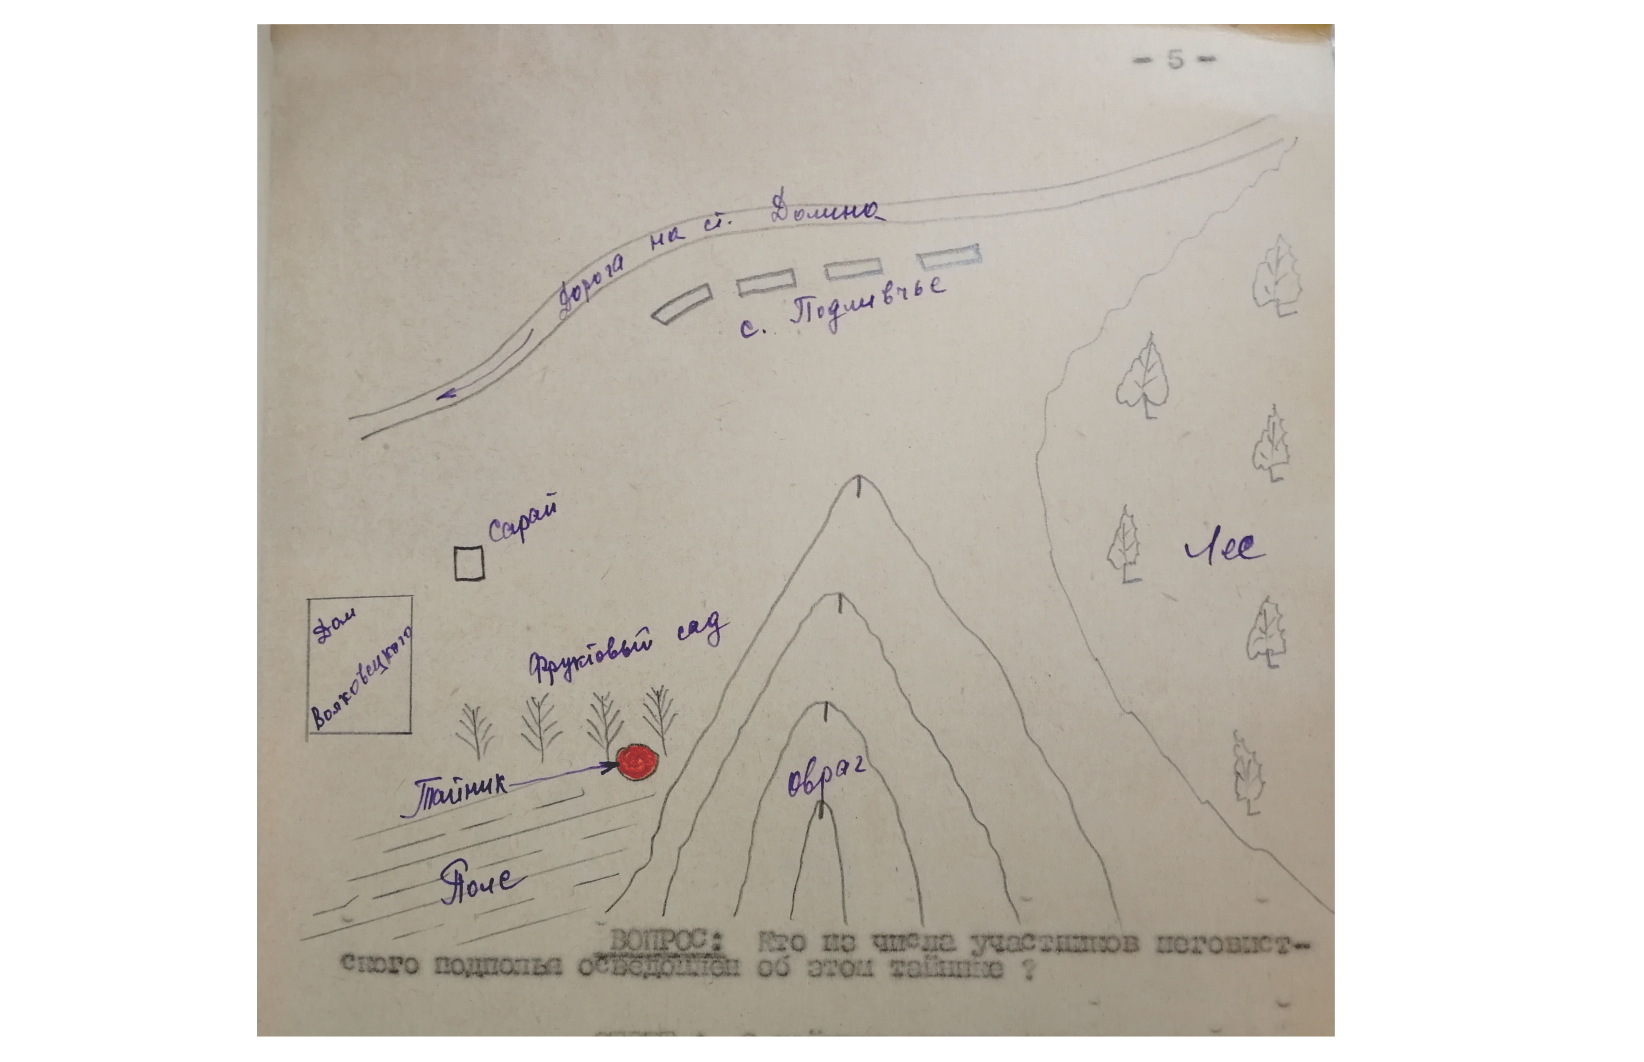 - 5 -
Дорога на ст. Долина
с. Подливчье
Сарай
Лес
Дом
Волковецкого
Фруктовый сад
Тайник
Овраг
Поле
ВОПРОС: Кто из числа участников неговист-
ского подполья осведомлен об этом тайнике ?